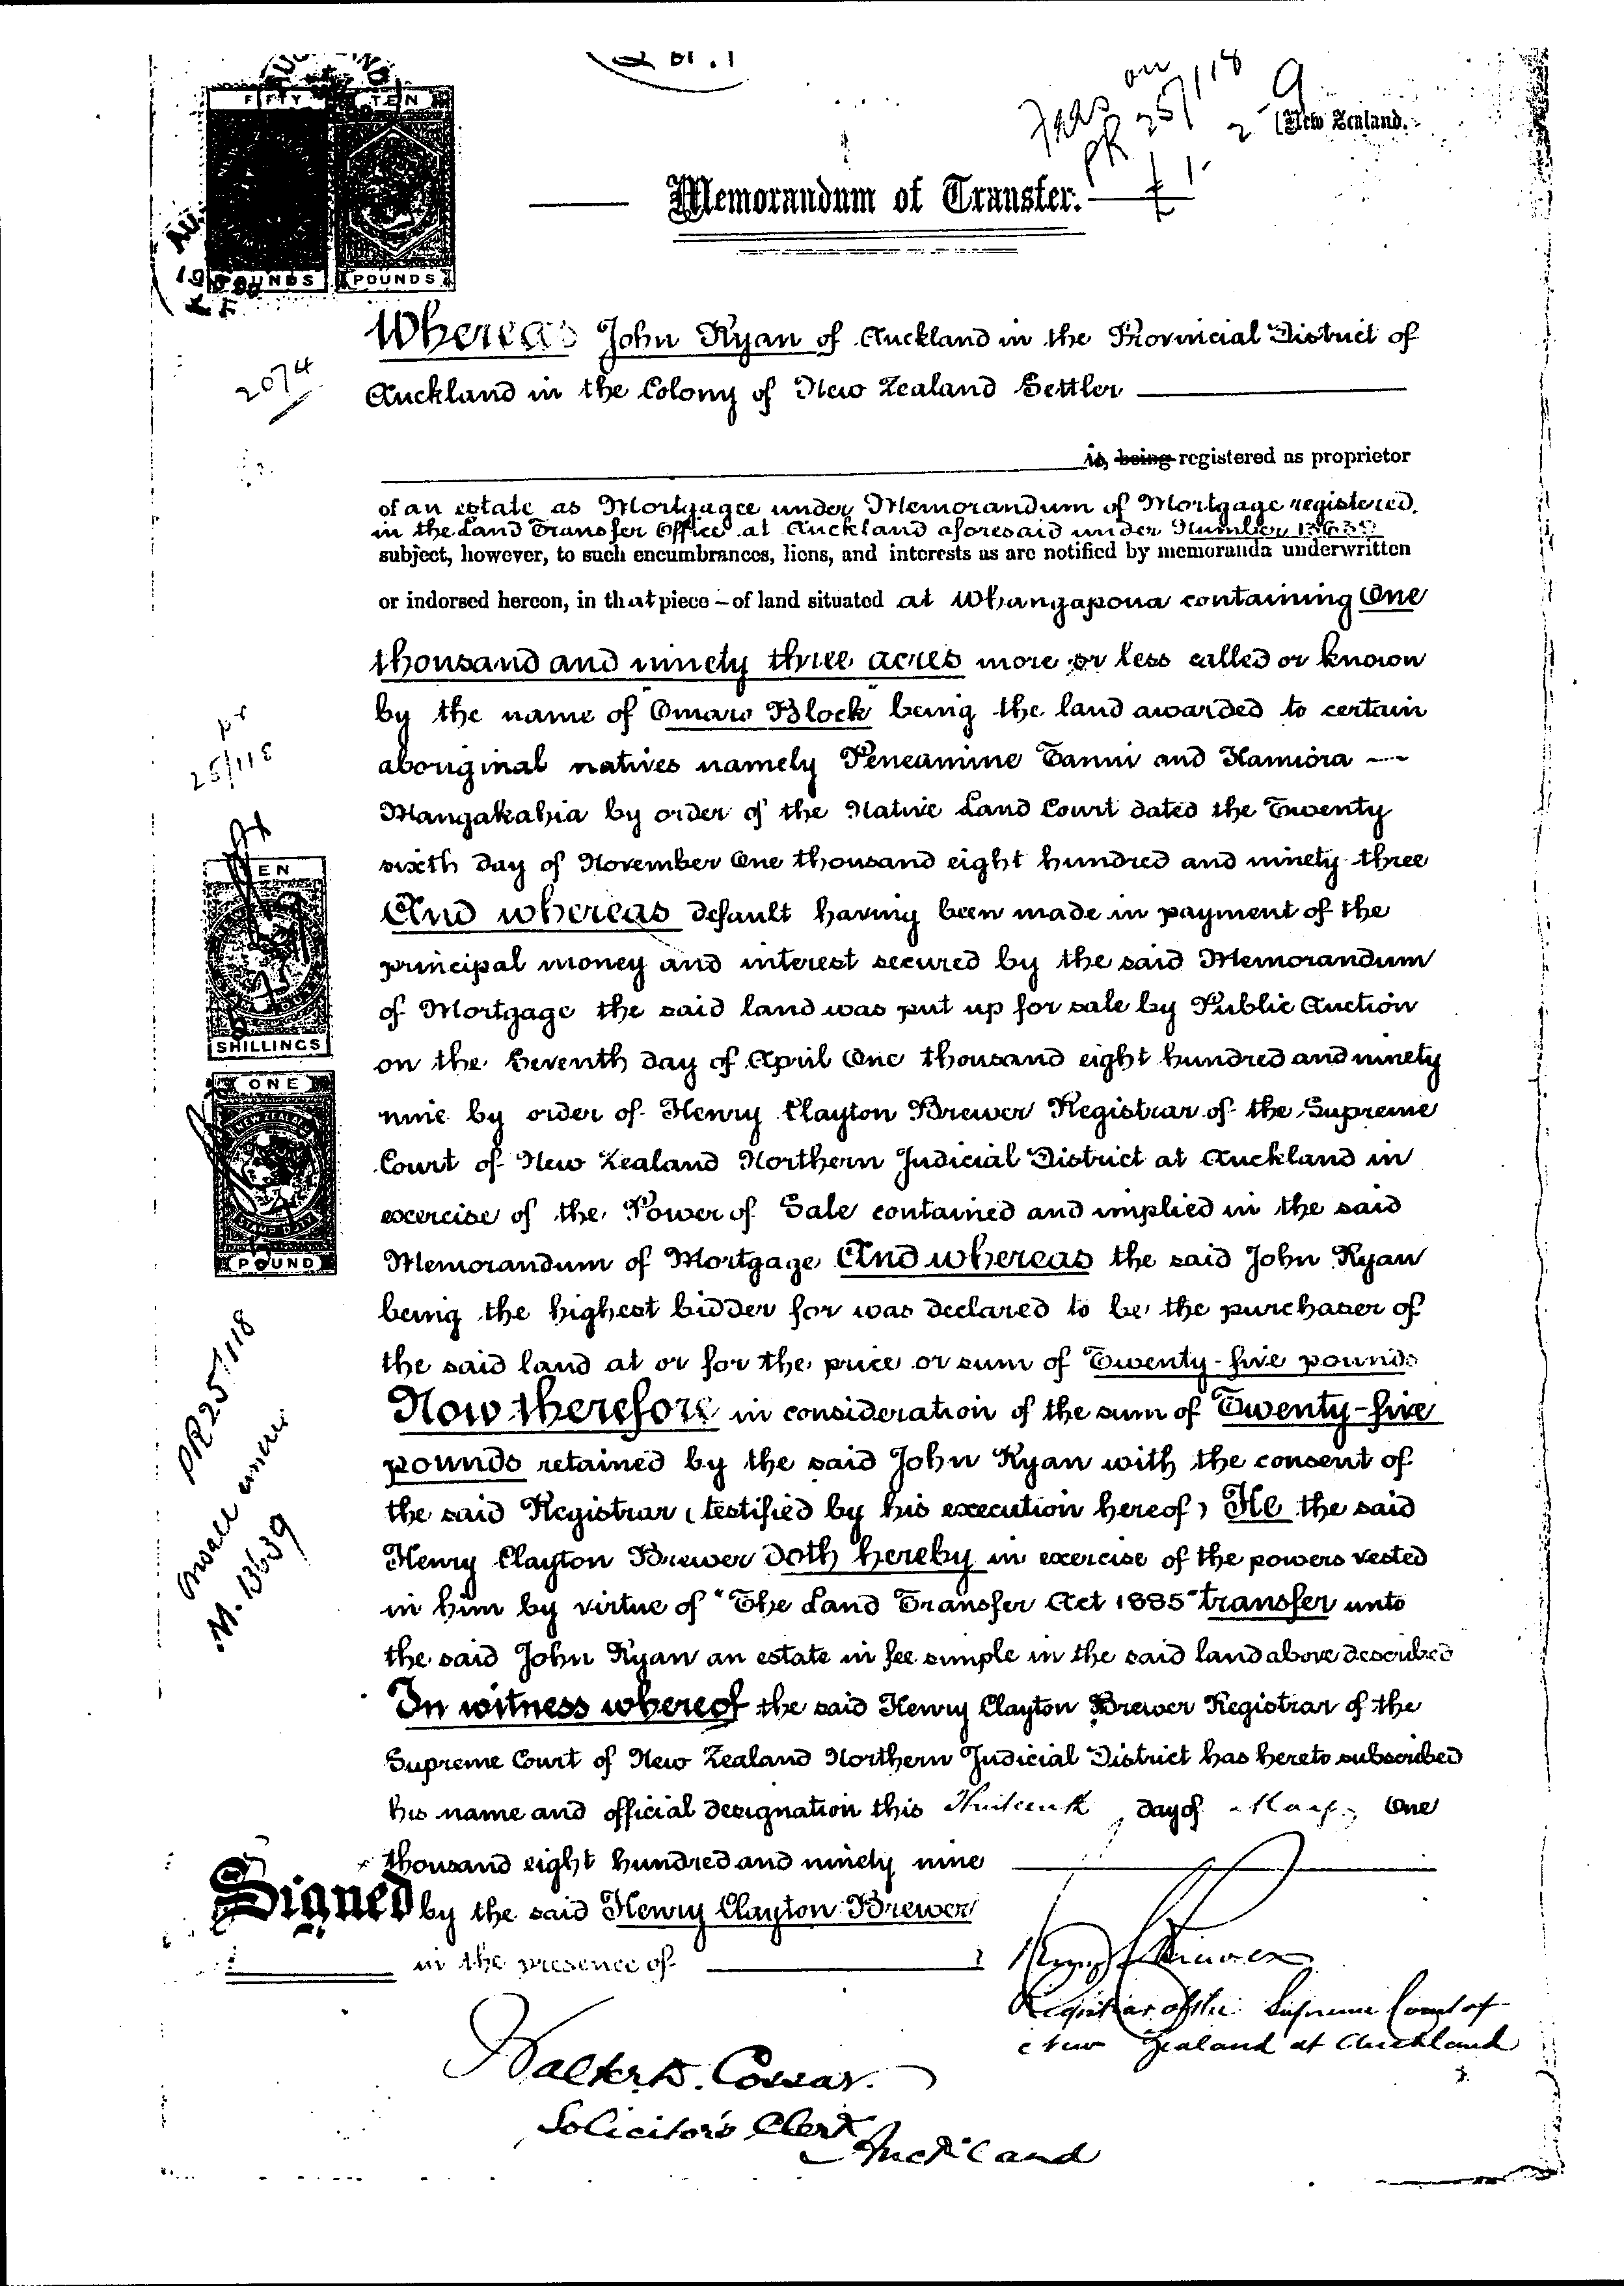 FIFTY TEN
POUNDS POUNDS
on
25/118
PR
2
[New Zealand.
Memorandum of Transfer.
£1
2074
Whereas John Ryan of Auckland in the Provincial District of
Auckland in the Colony of New Zealand Settler
is, being registered as proprietor
of an estate as Mortgagee under Memorandum of Mortgage registered
in the Land Transfer Office at Auckland aforesaid under Number 13639
subject, however, to such encumbrances, liens, and interests as are notified by memoranda underwritten
or indorsed hereon, in that piece - of land situated at Whangapoua containing One
thousand and ninety three acres more or less called or known
by the name of "Omaro Block" being the land awarded to certain
aboriginal natives namely Peneamine Tanui and Hamiora
Mangakahia by order of the Native Land Court dated the Twenty
sixth day of November One thousand eight hundred and ninety three
And whereas default having been made in payment of the
principal money and interest secured by the said Memorandum
of Mortgage the said land was put up for sale by Public Auction
on the Seventh day of April One thousand eight hundred and ninety
nine by order of Henry Clayton Brewer Registrar of the Supreme
Court of New Zealand Northern Judicial District at Auckland in
exercise of the Power of Sale contained and implied in the said
Memorandum of Mortgage And whereas the said John Ryan
being the highest bidder for was declared to be the purchaser of
the said land at or for the price or sum of Twenty-five pounds
Now therefore in consideration of the sum of Twenty-five
pounds retained by the said John Ryan with the consent of
the said Registrar (testified by his execution hereof) He the said
Henry Clayton Brewer doth hereby in exercise of the powers vested
in him by virtue of "The Land Transfer Act 1885" transfer unto
the said John Ryan an estate in fee simple in the said land above described
In witness whereof the said Henry Clayton Brewer Registrar of the
Supreme Court of New Zealand Northern Judicial District has hereto subscribed
his name and official designation this day of May One
thousand eight hundred and ninety nine
Signed by the said Henry Clayton Brewer
in the presence of
Registrar of the Supreme Court of
New Zealand at Auckland
Walter D. Cossar.
Solicitor's Clerk
Auckland
pr
25/118
TEN
SHILLINGS
ONE
POUND
PR 25/118
M. 13639